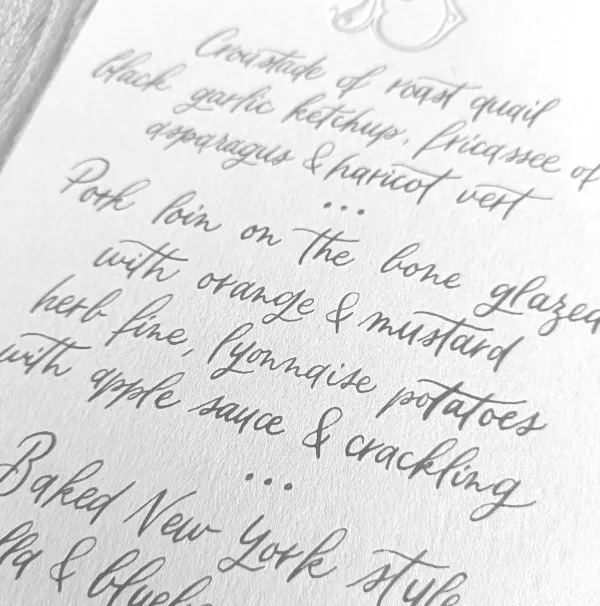 Croustade of roast quail
black garlic ketchup, fricassee of
asparagus & haricot vert
...
Pork loin on the bone glazed
with orange & mustard
herb fine, lyonnaise potatoes
with apple sauce & crackling
...
Baked New York style
&